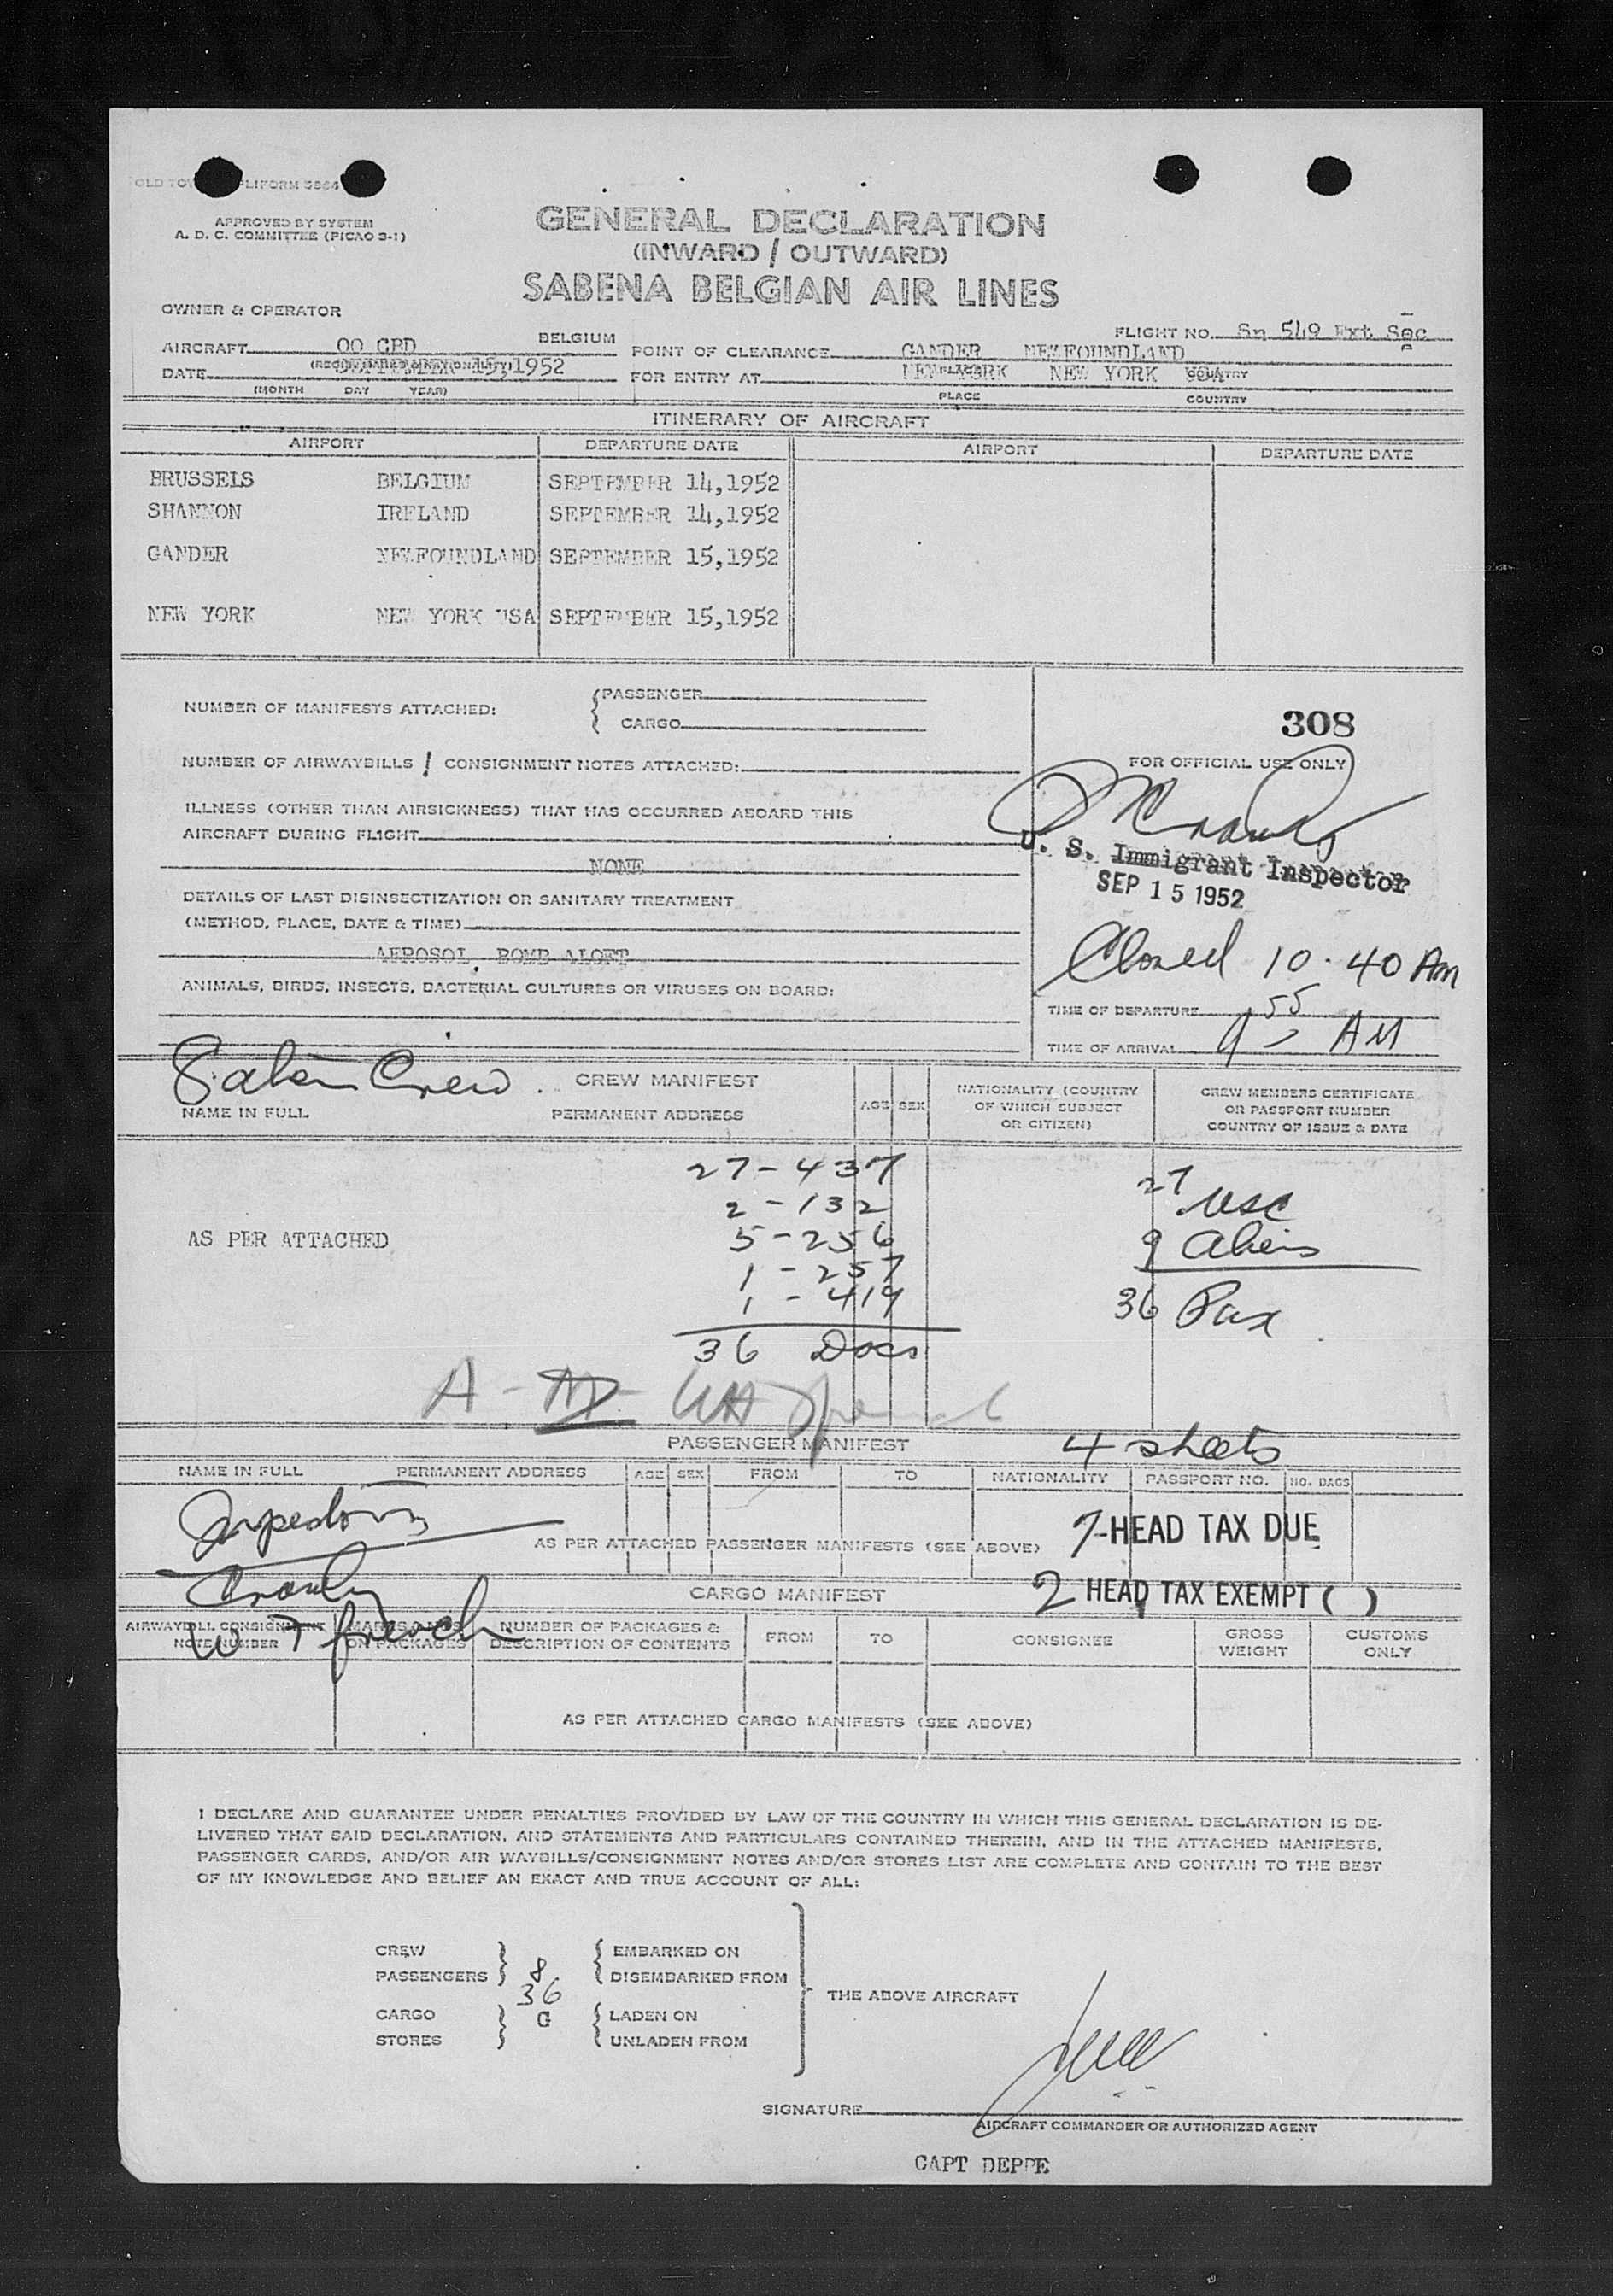 APPROVED BY SYSTEM
A. D. C. COMMITTEE (PICAO 3-1)
GENERAL DECLARATION
(INWARD / OUTWARD)
SABENA BELGIAN AIR LINES
OWNER & OPERATOR
FLIGHT NO. Sn 549 Ext Sec
AIRCRAFT OO CBD BELGIUM POINT OF CLEARANCE GANDER NEWFOUNDLAND
DATE SEPTEMBER 15,1952 FOR ENTRY AT NEW YORK NEW YORK USA
(MONTH DAY YEAR) PLACE COUNTRY
ITINERARY OF AIRCRAFT
AIRPORT DEPARTURE DATE AIRPORT DEPARTURE DATE
BRUSSELS BELGIUM SEPTEMBER 14,1952
SHANNON IRELAND SEPTEMBER 14,1952
GANDER NEWFOUNDLAND SEPTEMBER 15,1952
NEW YORK NEW YORK USA SEPTEMBER 15,1952
NUMBER OF MANIFESTS ATTACHED: PASSENGER
CARGO
308
NUMBER OF AIRWAYBILLS / CONSIGNMENT NOTES ATTACHED:
FOR OFFICIAL USE ONLY
ILLNESS (OTHER THAN AIRSICKNESS) THAT HAS OCCURRED ABOARD THIS
AIRCRAFT DURING FLIGHT
NONE
U. S. Immigrant Inspector
SEP 15 1952
DETAILS OF LAST DISINSECTIZATION OR SANITARY TREATMENT
(METHOD, PLACE, DATE & TIME)
AEROSOL BOMB ALOFT
Closed 10.40 Am
ANIMALS, BIRDS, INSECTS, BACTERIAL CULTURES OR VIRUSES ON BOARD:
TIME OF DEPARTURE
TIME OF ARRIVAL 9 55 AM
Crew
CREW MANIFEST
NAME IN FULL PERMANENT ADDRESS AGE SEX NATIONALITY (COUNTRY
OF WHICH SUBJECT
OR CITIZEN)
CREW MEMBERS CERTIFICATE
OR PASSPORT NUMBER
COUNTRY OF ISSUE & DATE
27 - 437
2 - 132
5 - 256
1 - 257
1 - 419
36 Docs
AS PER ATTACHED
27 USC
9 Aliens
36 Pax
PASSENGER MANIFEST
4 sheets
NAME IN FULL PERMANENT ADDRESS AGE SEX FROM TO NATIONALITY PASSPORT NO. NO. BAGS
Inspectors
AS PER ATTACHED PASSENGER MANIFESTS (SEE ABOVE)
7-HEAD TAX DUE
CARGO MANIFEST
2 HEAD TAX EXEMPT ( )
W T French
AIRWAYBILL CONSIGNMENT
NOTE NUMBER
MARKS & NOS
ON PACKAGES
NUMBER OF PACKAGES &
DESCRIPTION OF CONTENTS
FROM TO CONSIGNEE
GROSS
WEIGHT
CUSTOMS
ONLY
AS PER ATTACHED CARGO MANIFESTS (SEE ABOVE)
I DECLARE AND GUARANTEE UNDER PENALTIES PROVIDED BY LAW OF THE COUNTRY IN WHICH THIS GENERAL DECLARATION IS DE-
LIVERED THAT SAID DECLARATION, AND STATEMENTS AND PARTICULARS CONTAINED THEREIN, AND IN THE ATTACHED MANIFESTS,
PASSENGER CARDS, AND/OR AIR WAYBILLS/CONSIGNMENT NOTES AND/OR STORES LIST ARE COMPLETE AND CONTAIN TO THE BEST
OF MY KNOWLEDGE AND BELIEF AN EXACT AND TRUE ACCOUNT OF ALL:
CREW 8 EMBARKED ON
PASSENGERS 36 DISEMBARKED FROM
THE ABOVE AIRCRAFT
CARGO G LADEN ON
STORES UNLADEN FROM
SIGNATURE
AIRCRAFT COMMANDER OR AUTHORIZED AGENT
CAPT DEPPE